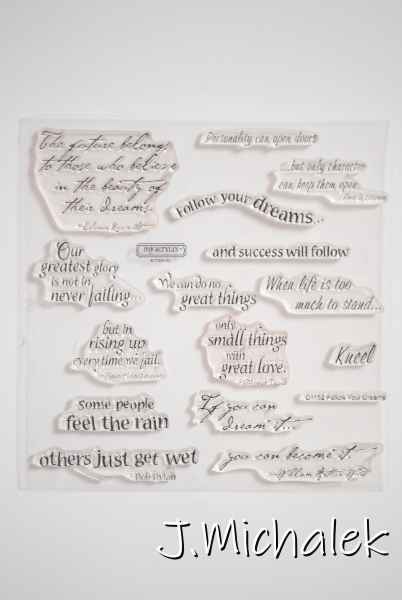 The future belongs
to those who believe
in the beauty of
their dreams.
~Eleanor Roosevelt
Personality can open doors
...but only character
can keep them open.
Follow your dreams...
Our
greatest glory
is not in
never failing...
and success will follow
We can do no
great things
When life is too
much to stand...
but in
rising up
every time we fail.
only
small things
with
great love.
Kneel
some people
feel the rain
If you can
dream it...
Follow Your Dreams
others just get wet
Bob Dylan
you can become it.
~William Arthur Ward
J.Michalek